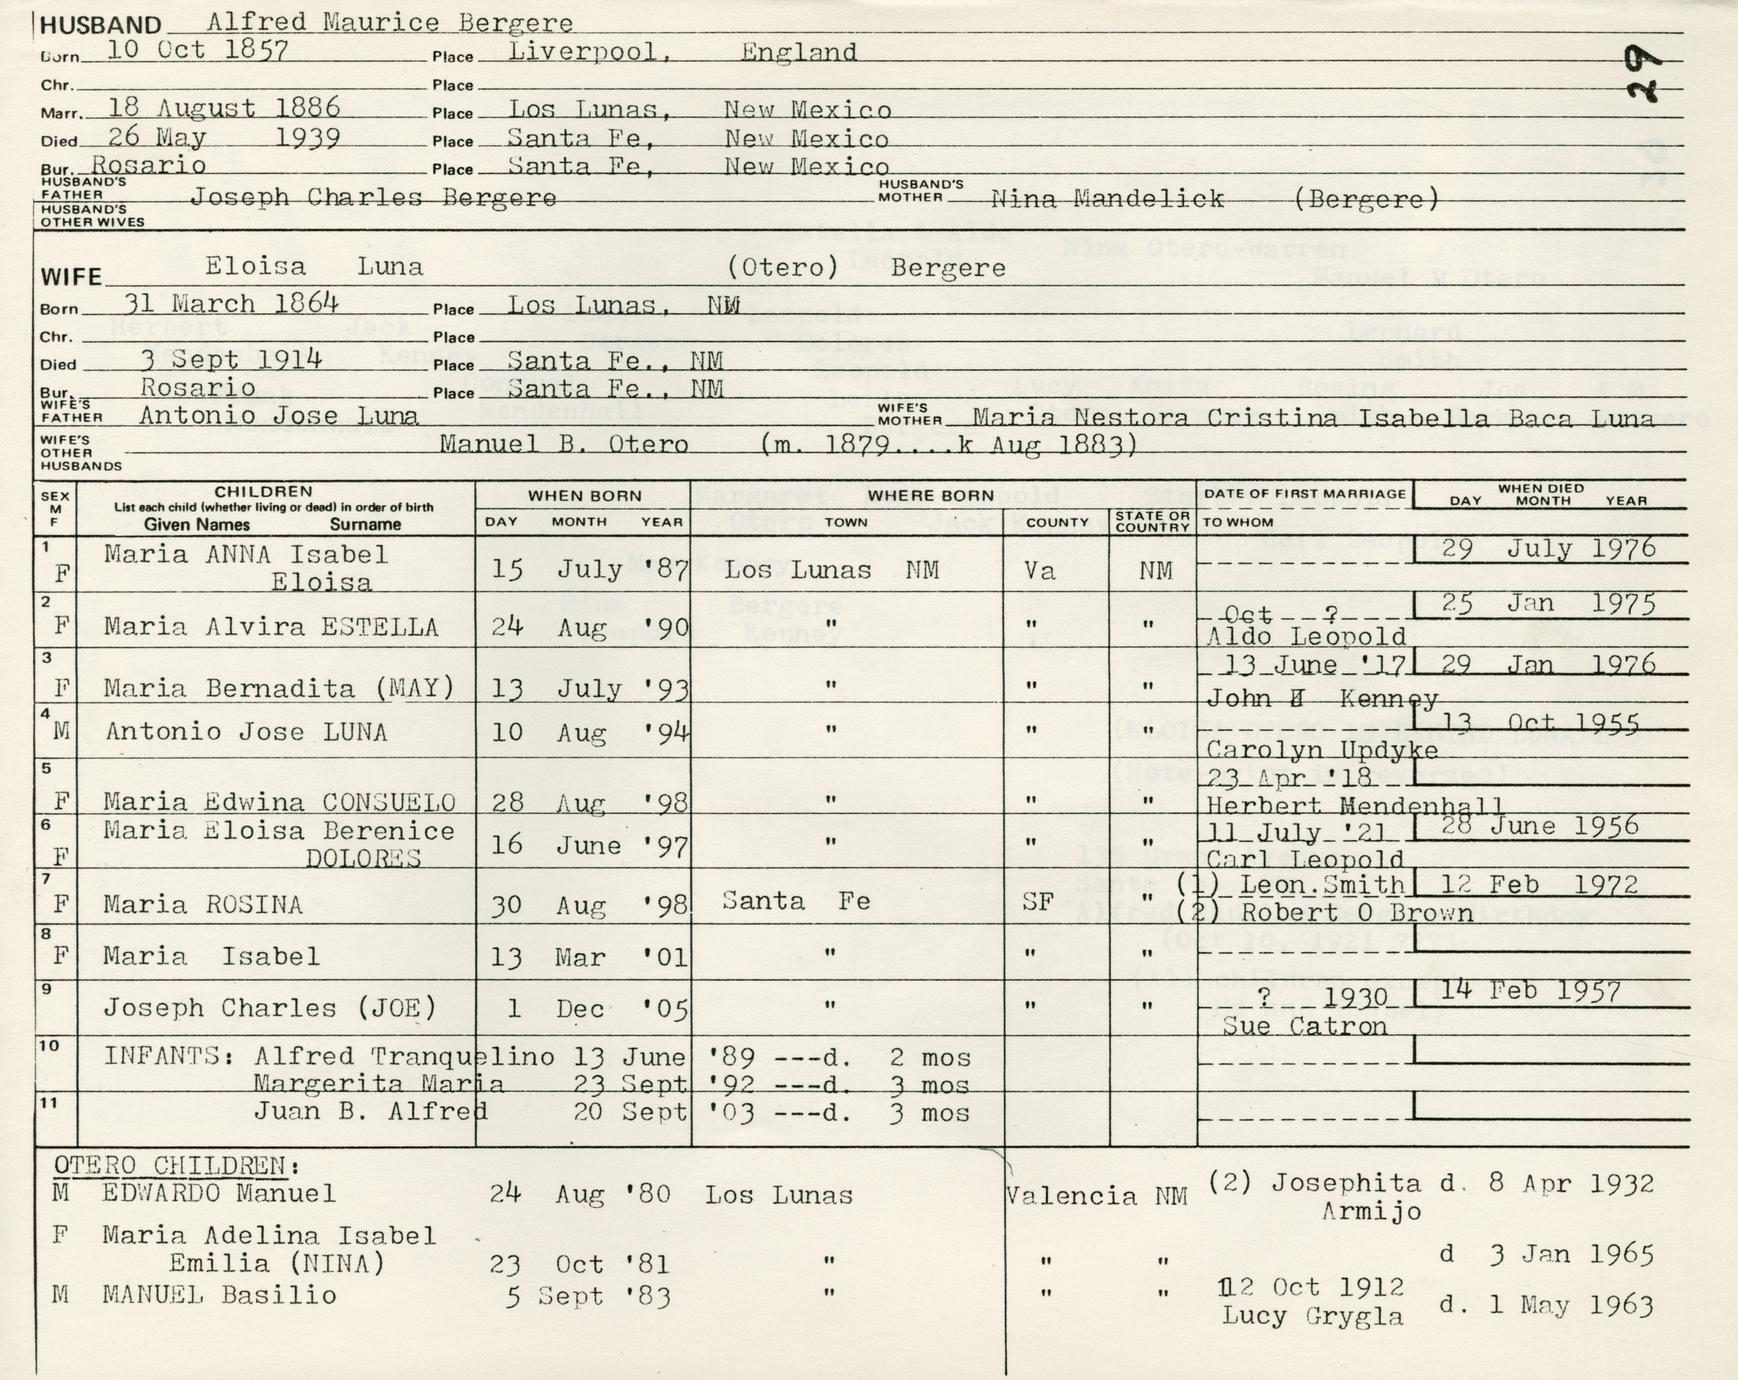 29
HUSBAND Alfred Maurice Bergere
Born 10 Oct 1857 Place Liverpool, England
Chr. Place
Marr. 18 August 1886 Place Los Lunas, New Mexico
Died 26 May 1939 Place Santa Fe, New Mexico
Bur. Rosario Place Santa Fe, New Mexico
HUSBAND'S FATHER Joseph Charles Bergere HUSBAND'S MOTHER Nina Mandelick (Bergere)
HUSBAND'S OTHER WIVES
WIFE Eloisa Luna (Otero) Bergere
Born 31 March 1864 Place Los Lunas, NM
Chr. Place
Died 3 Sept 1914 Place Santa Fe., NM
Bur. Rosario Place Santa Fe., NM
WIFE'S FATHER Antonio Jose Luna WIFE'S MOTHER Maria Nestora Cristina Isabella Baca Luna
WIFE'S OTHER HUSBANDS Manuel B. Otero (m. 1879....k Aug 1883)
SEX M F CHILDREN List each child (whether living or dead) in order of birth Given Names Surname WHEN BORN DAY MONTH YEAR WHERE BORN TOWN COUNTY STATE OR COUNTRY DATE OF FIRST MARRIAGE TO WHOM WHEN DIED DAY MONTH YEAR
1 F Maria ANNA Isabel Eloisa 15 July '87 Los Lunas NM Va NM 29 July 1976
2 F Maria Alvira ESTELLA 24 Aug '90 " " " Oct ? 25 Jan 1975
Aldo Leopold
3 F Maria Bernadita (MAY) 13 July '93 " " " 13 June '17 29 Jan 1976
John Kenney
4 M Antonio Jose LUNA 10 Aug '94 " " " 13 Oct 1955
Carolyn Updyke
5 F Maria Edwina CONSUELO 28 Aug '98 " " " 23 Apr '18
Herbert Mendenhall
6 F Maria Eloisa Berenice DOLORES 16 June '97 " " " 11 July '21 28 June 1956
Carl Leopold
7 F Maria ROSINA 30 Aug '98 Santa Fe SF " (1) Leon.Smith 12 Feb 1972
(2) Robert O Brown
8 F Maria Isabel 13 Mar '01 " " "
9 Joseph Charles (JOE) 1 Dec '05 " " " ? 1930 14 Feb 1957
Sue Catron
10 INFANTS: Alfred Tranquelino 13 June '89 ---d. 2 mos
Margerita Maria 23 Sept '92 ---d. 3 mos
11 Juan B. Alfred 20 Sept '03 ---d. 3 mos
OTERO CHILDREN:
M EDWARDO Manuel 24 Aug '80 Los Lunas Valencia NM (2) Josephita d. 8 Apr 1932
Armijo
F Maria Adelina Isabel
Emilia (NINA) 23 Oct '81 " " " d 3 Jan 1965
M MANUEL Basilio 5 Sept '83 " " " 12 Oct 1912
Lucy Grygla d. 1 May 1963